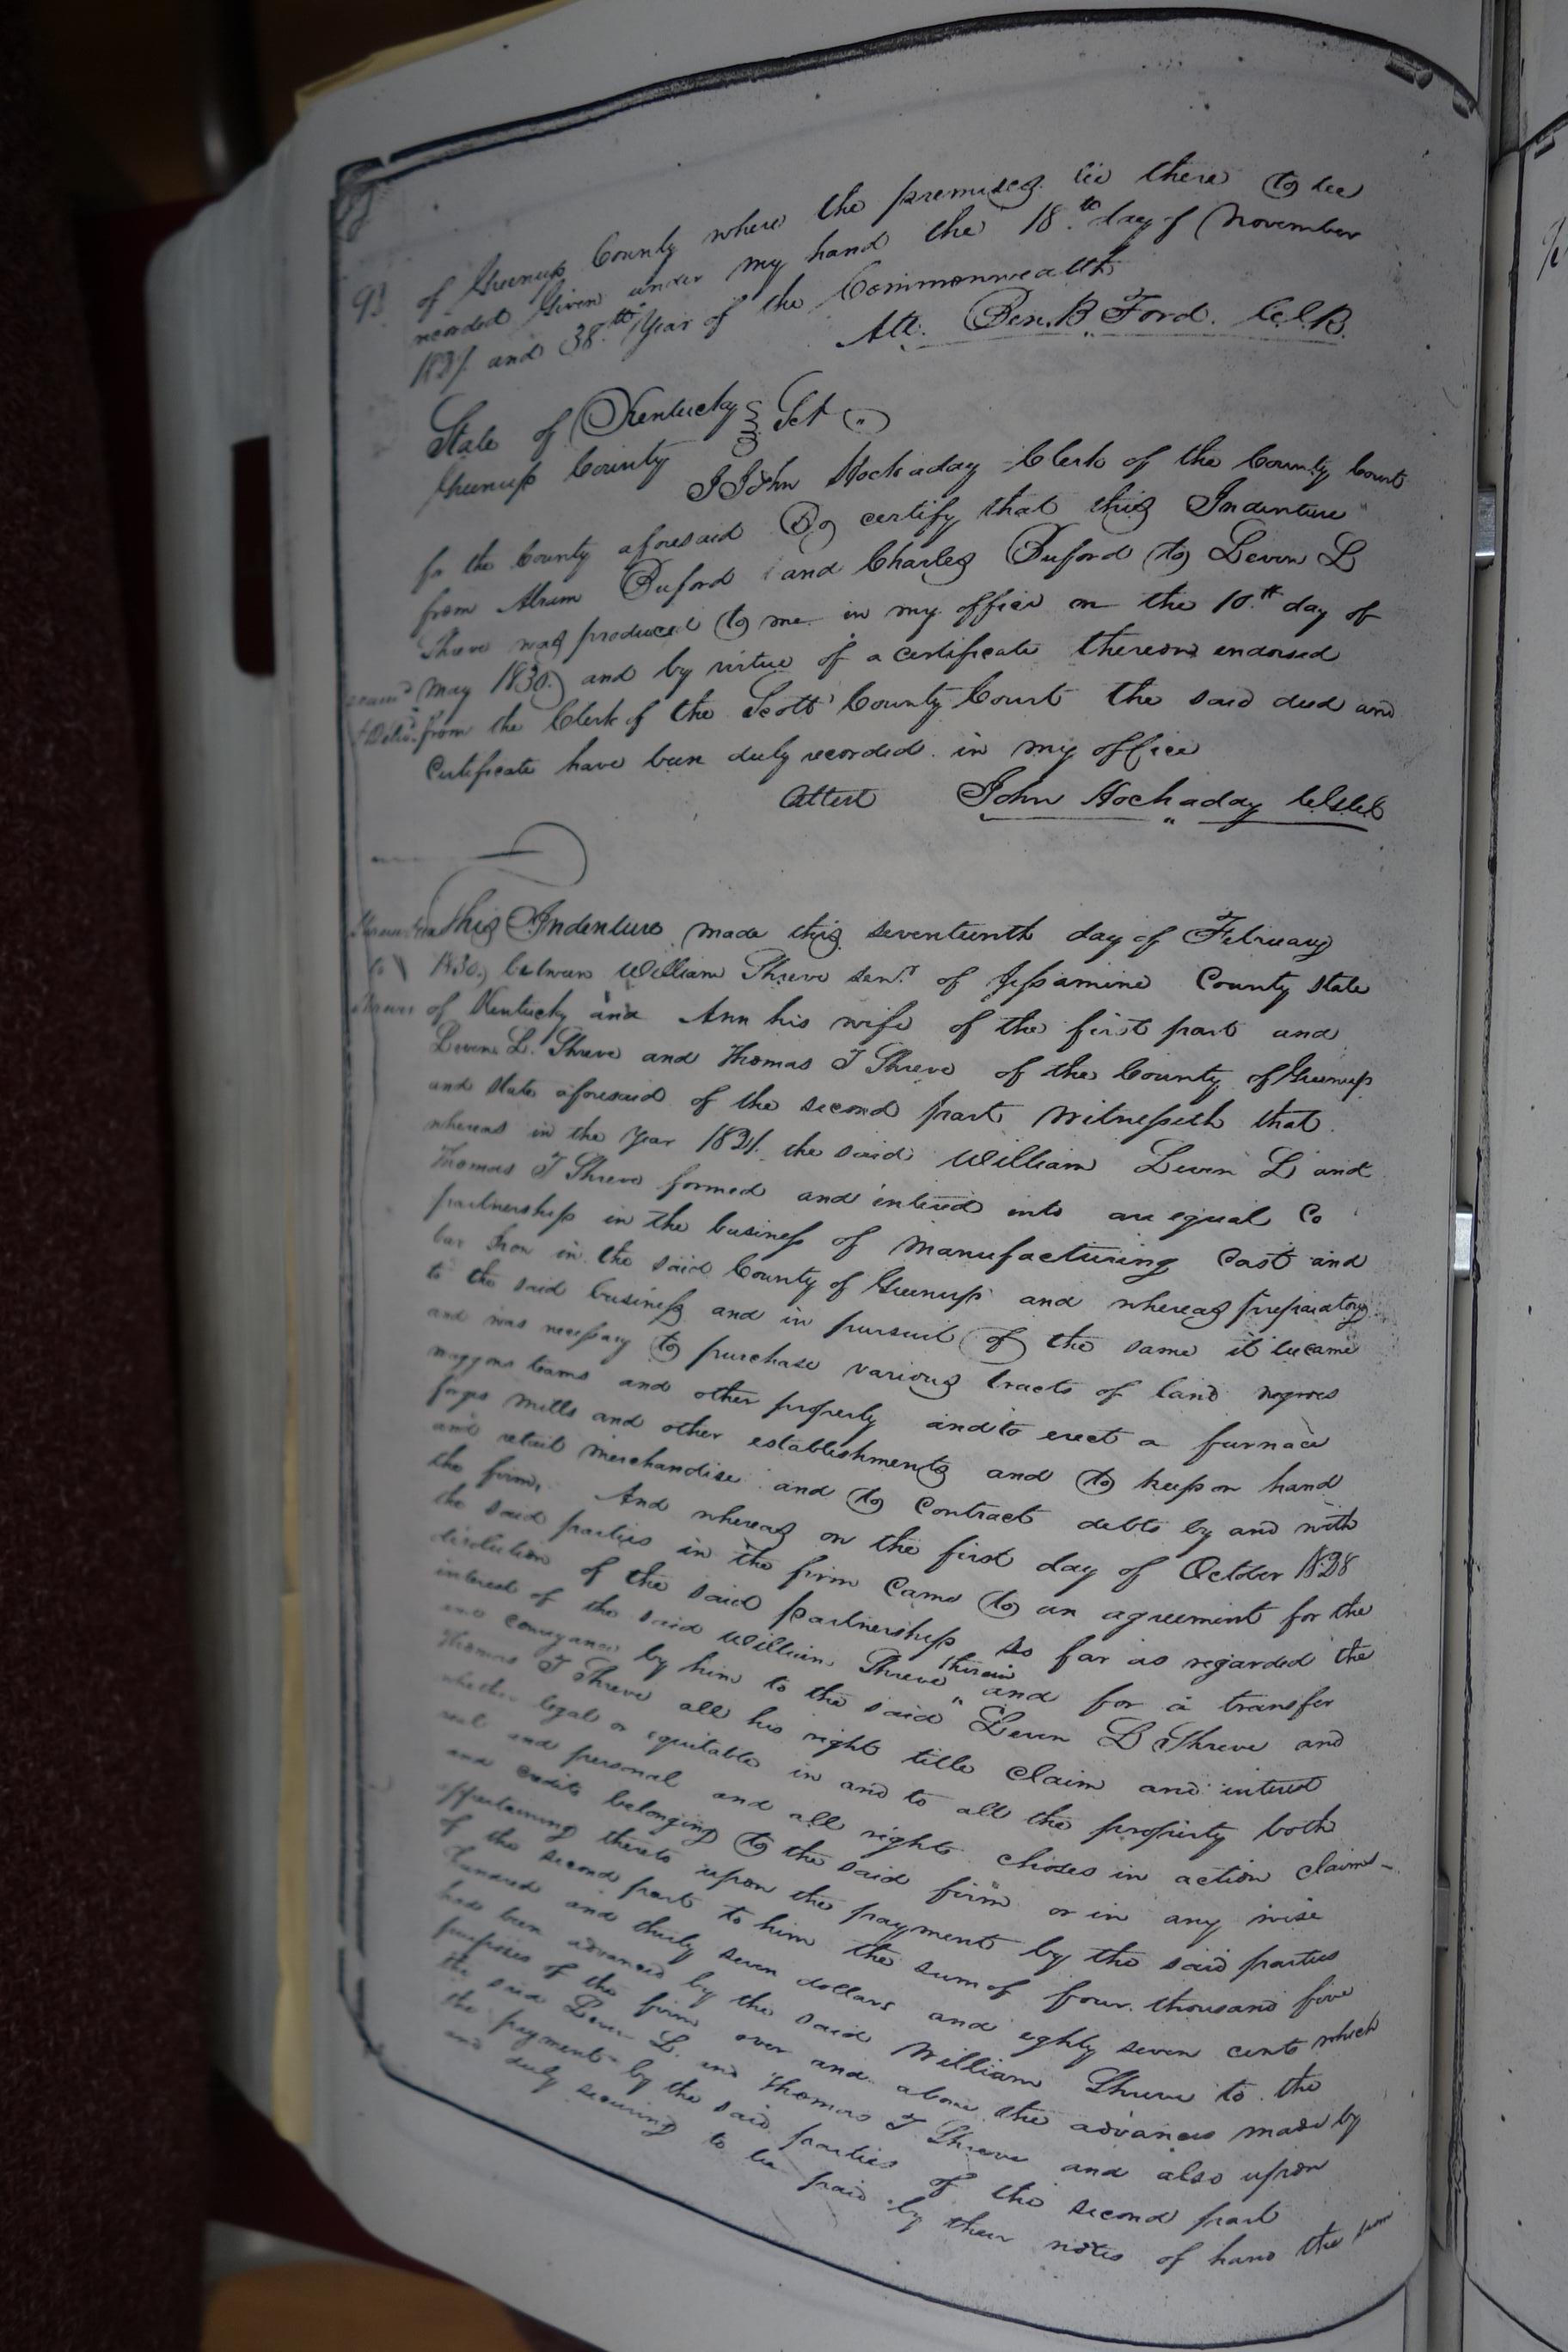 93 of Greenup County where the premises lie there to be
recorded Given under my hand the 18th day of November
1829 and 38th Year of the Commonwealth
Att. Ben. B Ford. C.C.B.
State of Kentucky Sct
Greenup County
I John Hockaday Clerk of the County Court
for the County aforesaid Do certify that this Indenture
from Abram Buford and Charles Buford to Levin L
Shreve was produced to me in my office on the 10th day of
May 1830 and by virtue of a certificate thereon endorsed
from the Clerk of the Scott County Court the said deed and
Certificate have been duly recorded in my office
Attest John Hockaday
This Indenture made this seventeenth day of February
to 1830, between William Shreve senr. of Jessamine County State
of Kentucky and Ann his wife of the first part and
Levin L. Shreve and Thomas T Shreve of the County of Greenup
and State aforesaid of the second part Witnesseth that
whereas in the Year the said William Levin L and
Thomas T Shreve formed and intered into an equal Co
partnership in the business of manufacturing Cast and
bar Iron in the said County of Greenup and whereas preparatory
to the said business and in pursuit of the same it became
and was necessary to purchase various tracts of land negroes
waggons teams and other property and to erect a furnace
forges mills and other establishments and to keep on hand
and retail merchandise and to Contract debts by and with
the firm, And whereas on the first day of October 1828
the said parties in the firm Came to an agreement for the
disolution of the said partnership so far as regarded the
interest of the said William Shreve therein and for a transfer
and conveyance by him to the said Levin L Shreve and
Thomas T Shreve all his right title Claim and interest
whether legal or equitable in and to all the property both
real and personal and all rights choses in action claims
and credits belonging to the said firm or in any wise
appertaining thereto upon the payment by the said parties
of the second part to him the sum of four thousand five
hundred and thirty seven dollars and eighty seven cents which
has been advanced by the said William Shreve to the
purposes of the firm over and above the advances made by
the said Levin L. and Thomas T Shreve and also upon
the payment by the said parties of the second part
and duly securing to be paid by their notes of hand the